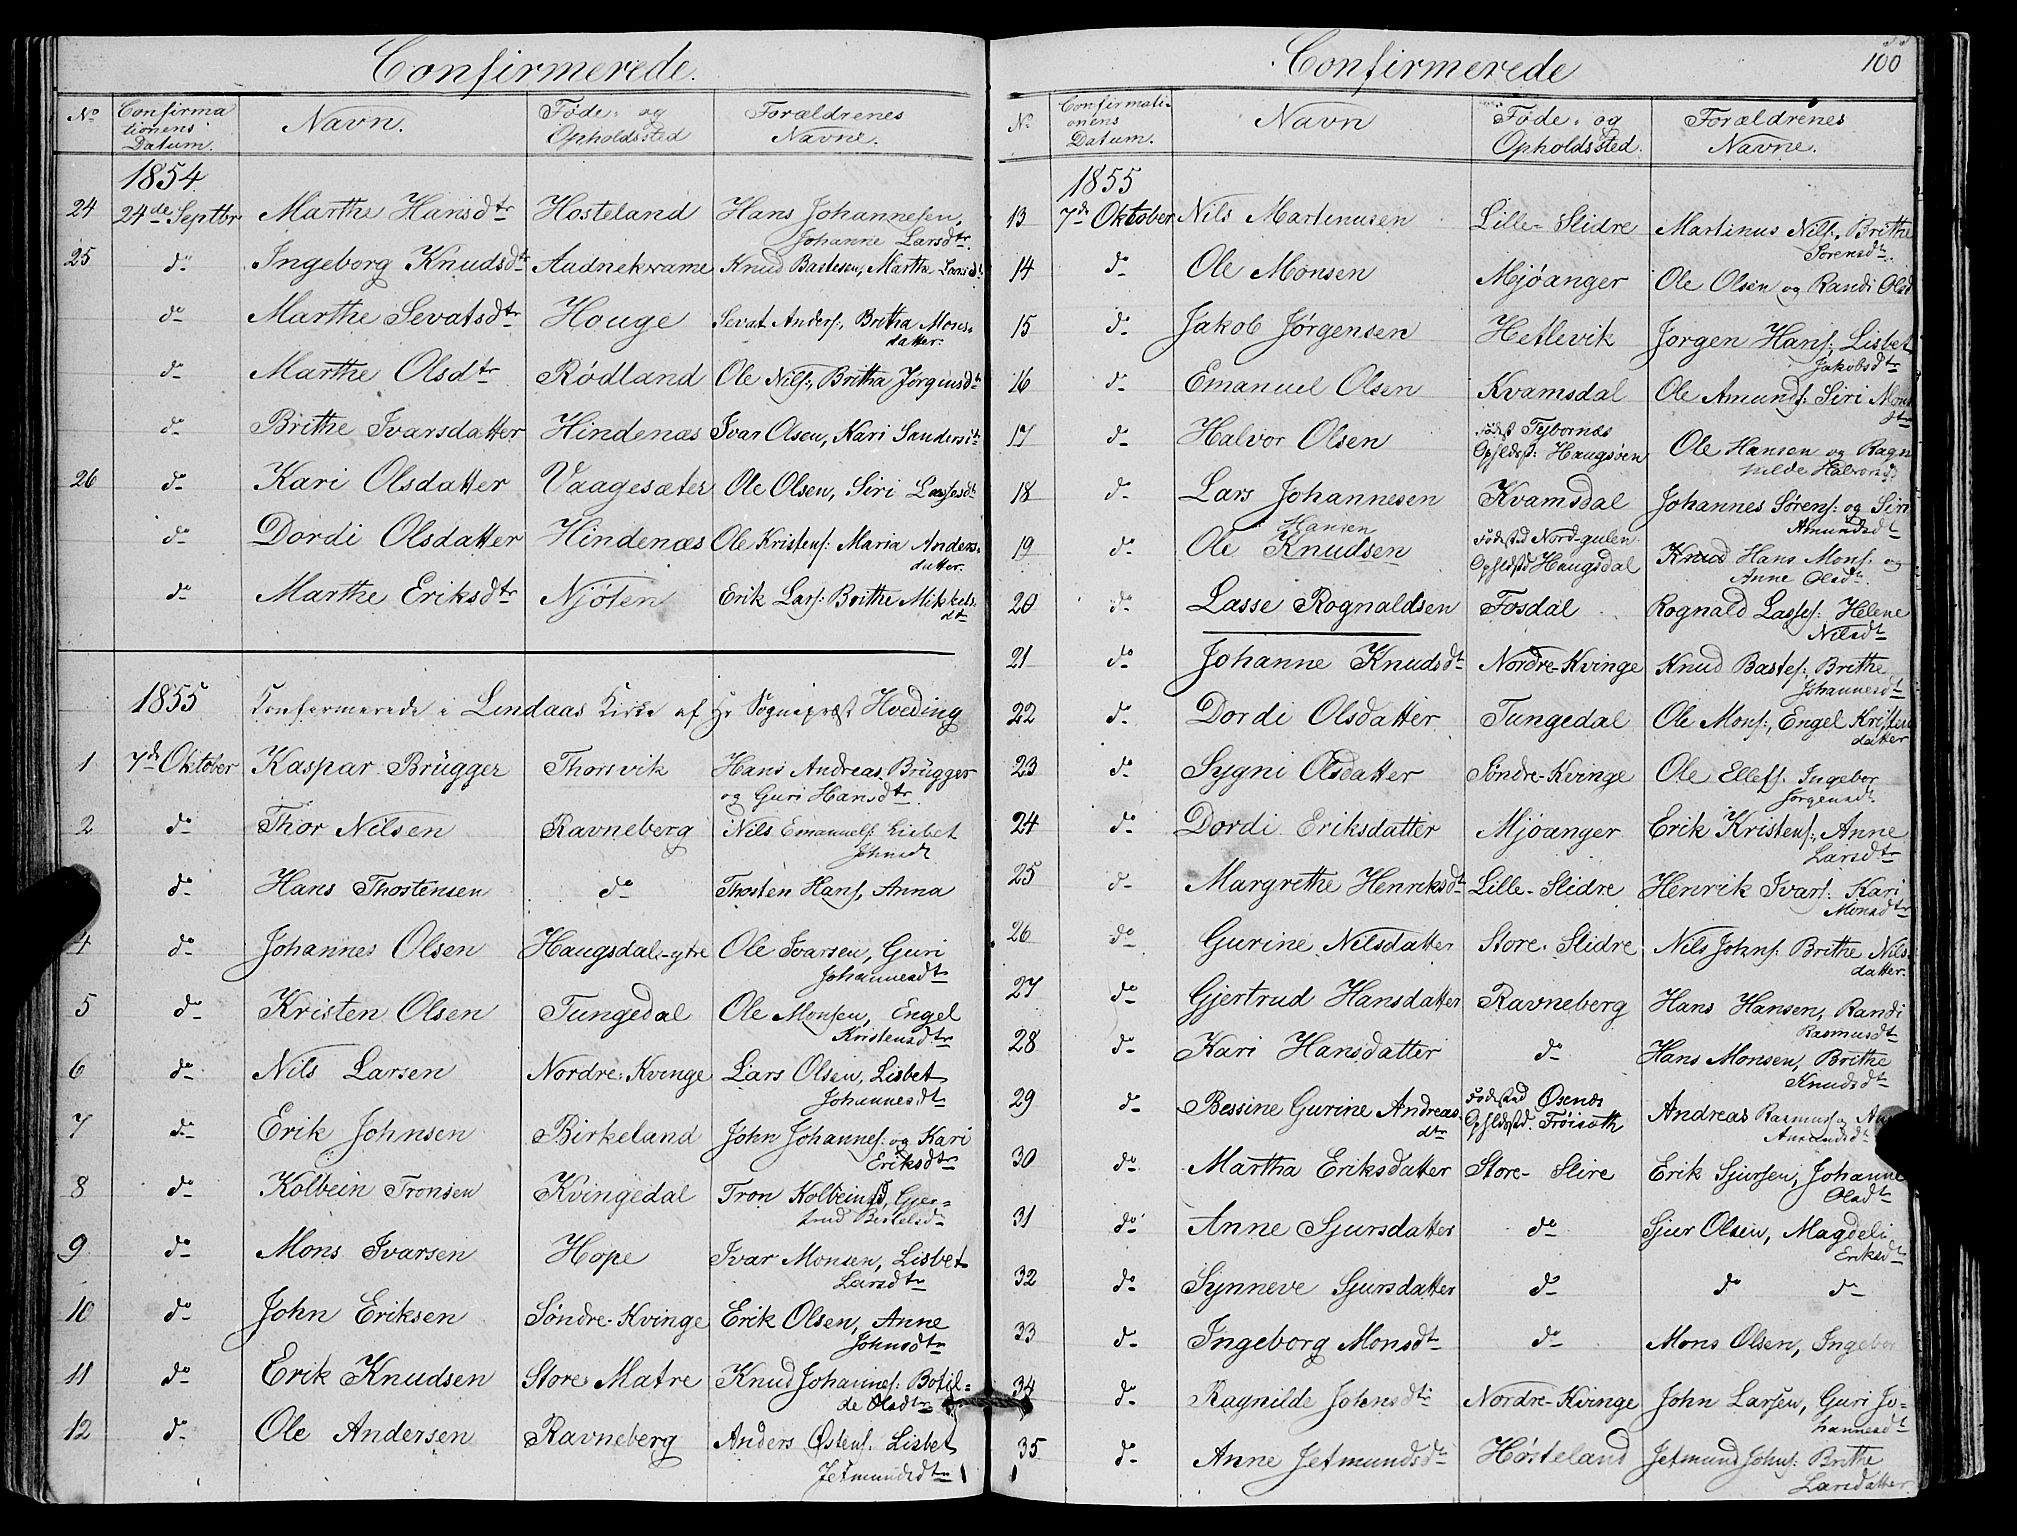 Confirmerede.
No Confirmationens Datum. Navn. Føde- og Opholdssted Forældrenes Navne.
1854
24 24de Septbr Marthe Hansdtr Hosteland Hans Johannesen, Johanne Larsdtr.
25 do Ingeborg Knudsdtr Audnekvame Knud Bastesen, Marthe Larsd.
do Marthe Sevatsdtr Houge Sevat Anders:, Britha Monsdatter.
do Marthe Olsdtr Rødland Ole Nils:, Britha Jørgensdtr
do Brithe Ivarsdatter Hindenæs Ivar Olsen, Kari Sandersdtr
26 do Kari Olsdatter Vaagesæter Ole Olsen, Siri Lassesdtr
do Dordi Olsdatter Hindenæs Ole Kristens: Maria Andersdatter.
do Marthe Eriksdtr Njøten Erik Lars: Brithe Mikkelsdtr
1855 Konfermerede i Lindaas Kirke af Hr Sognepræst Hveding
1 7de Oktober Kaspar Brügger Thorsvik Hans Andreas Brügger og Guri Hansdtr.
2 do Thor Nilsen Ravneberg Nils Emanuels: Lisbet Johnsdt
do Hans Thostensen do Thosten Hans:, Anna
4 do Johannes Olsen Haugsdal-ytre Ole Ivarsen, Guri Johannesdtr
5 do Kristen Olsen Tungedal Ole Monsen, Engel Kristensdtr
6 do Nils Larsen Nordre-Kvinge Lars Olsen, Lisbet Johannesdtr
7 do Erik Johnsen Birkeland John Johannes: og Kari Eriksdtr
8 do Kolbein Tronsen Kvingedal Tron Kolbeins, Gjertrud Bertelsdtr
9 do Mons Ivarsen Hope Ivar Monsen, Lisbet Larsdtr
10 do John Eriksen Søndre-Kvinge Erik Olsen, Anne Johnsdtr
11 do Erik Knudsen Store-Matre Knud Johannes: Botilde Olsdtr
12 do Ole Andersen Ravneberg Anders Østens: Lisbet Jetmundsdtr
Confirmerede
100
No Confirmationens Datum. Navn Føde- og Opholdssted. Forældrenes Navne.
1855
13 7de Oktober Nils Martinusen Lille-Slidre Martinus Nils:, Brithe Sørensdtr.
14 do Ole Monsen Mjøanger Ole Olsen og Randi Olsd
15 do Jakob Jørgensen Hetlevik Jørgen Hans: Lisbet Jakobsdtr
16 do Emanuel Olsen Kvamsdal Ole Amunds: Siri Monsdtr
17 do Halvor Olsen Fødst Tybornæs Opholdst: Haugsøen Ole Hansen og Ragnhilde Halvorsd.
18 do Lars Johannesen Kvamsdal Johannes Sørens: og Siri Amundsdt
19 do Ole Knudsen Hansen Fødested Nord-gulen Opholdstd Haugsdal Knud Hans Mons: og Anne Olsdtr.
20 do Lasse Rognaldsen Fosdal Rognald Lasses: Helene Nilsdt
21 do Johanne Knudsdtr Nordre-Kvinge Knud Bastes: Brithe Johannesdt
22 do Dordi Olsdatter Tungedal Ole Mons:, Engel Kristensdatter
23 do Sygni Olsdatter Søndre-Kvinge Ole Ellefs. Ingebor Jørgensdt
24 do Dordi Eriksdatter Mjøanger Erik Kristens:, Anne Larsdtr
25 do Margrethe Henriksdt Lille-Slidre Henrik Ivars: Kari Monsdtr
26 do Gurine Nilsdatter Store-Slidre Nils Johns: Brithe Nilsdatter.
27 do Gjertrud Hansdatter Ravneberg Hans Hansen, Randi Rasmusdt
28 do Kari Hansdatter do Hans Monsen, Brithe Knudsdt
29 do Bessine Gurine Andreasdtr Fødested Osenes Opholdstd. Frøisæth Andreas Rasmuss og
30 do Martha Eriksdatter Store-Slire Erik Sjursen, Johanne Olsdt
31 do Anne Sjursdatter do Sjur Olsen, Magdeli Eriksdt
32 do Synneve Sjursdatter do do do
33 do Ingeborg Monsdt do Mons Olsen, Ingebor
34 do Ragnilde Johnsdt Nordre-Kvinge John Larsen, Guri Johannesdt
35 do Anne Jetmundsdt Høsteland Jetmund Johns: Brithe Larsdatter